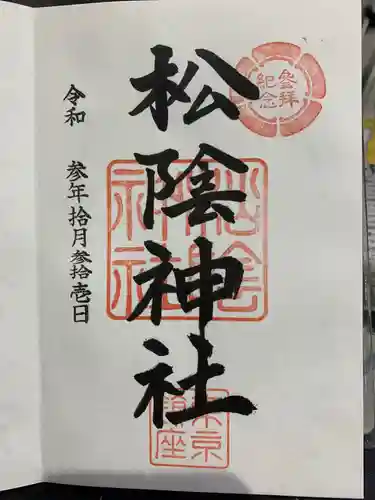 参拝
紀念
松陰神社
松陰
神社
東京
鎮座
令和 参年拾月参拾壱日